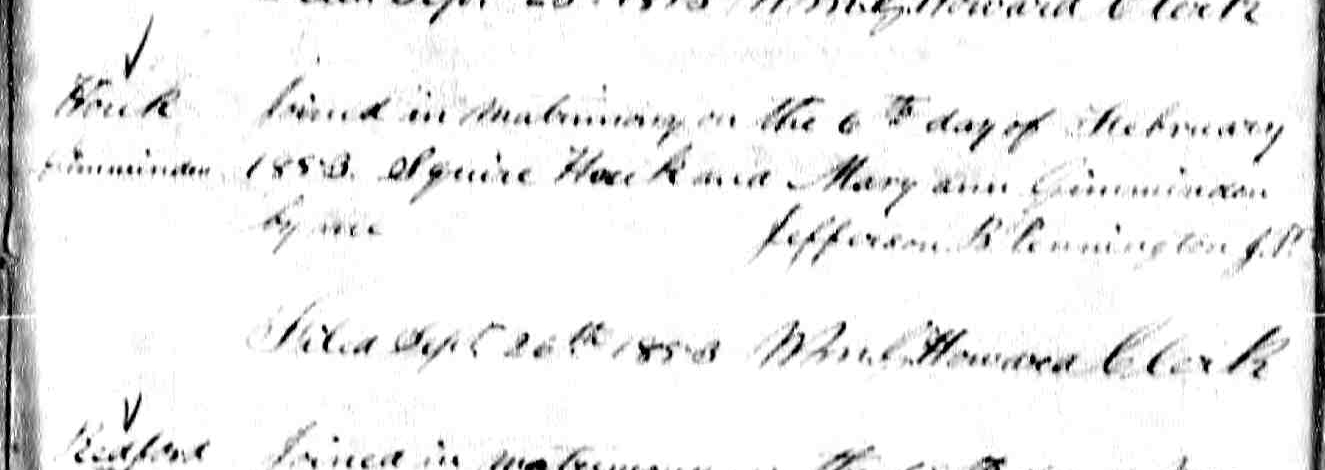 Sept 26th 1853 Wm C. Howard Clerk
Houk Joined in Matrimony on the 6th day of February
Gimmindon 1853. Squire Houk and Mary ann Gimmindon
by me Jefferson B Pennington J.P.
Filed Sept 26th 1853 Wm C. Howard Clerk
Redford Joined in matrimony